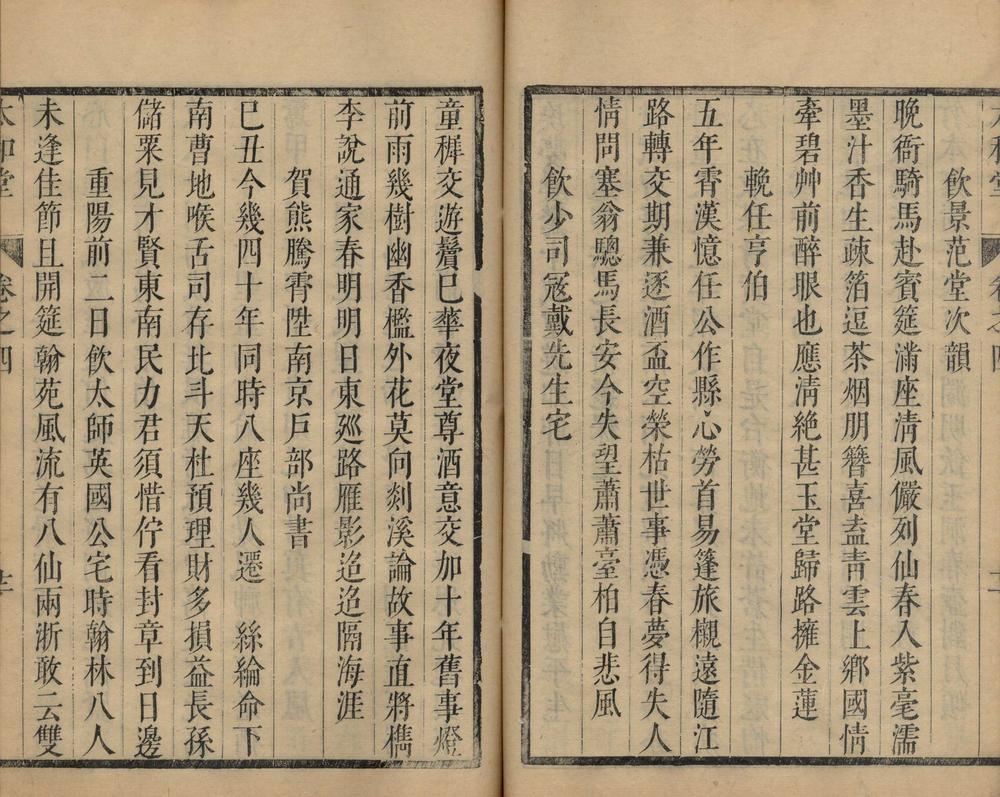 飲景范堂次韻
晚衙騎馬赴賓筵滿座清風儼列仙春入紫毫濡
墨汁香生疎箔逗茶烟朋簪喜盍靑雲上鄉國情
牽碧艸前醉眼也應淸絶甚玉堂歸路擁金蓮
輓任亨伯
五年霄漢憶任公作縣心勞首易篷旅櫬遠隨江
路轉交期兼逐酒盃空榮枯世事憑春夢得失人
情問塞翁驄馬長安今失望蕭蕭臺柏自悲風
飲少司宼戴先生宅
童穉交遊鬢巳華夜堂尊酒意交加十年舊事燈
前雨幾樹幽香檻外花莫向剡溪論故事直將檇
李說通家春明明日東廵路雁影迢迢隔海涯
賀熊騰霄陞南京戶部尚書
巳丑今幾四十年同時八座幾人遷絲綸命下
南曹地喉舌司存北斗天杜預理財多損益長孫
儲粟見才賢東南民力君須惜佇看封章到日邊
重陽前二日飲太師英國公宅時翰林八人
未逢佳節且開筵翰苑風流有八仙兩浙敢云雙
太和堂
卷之四